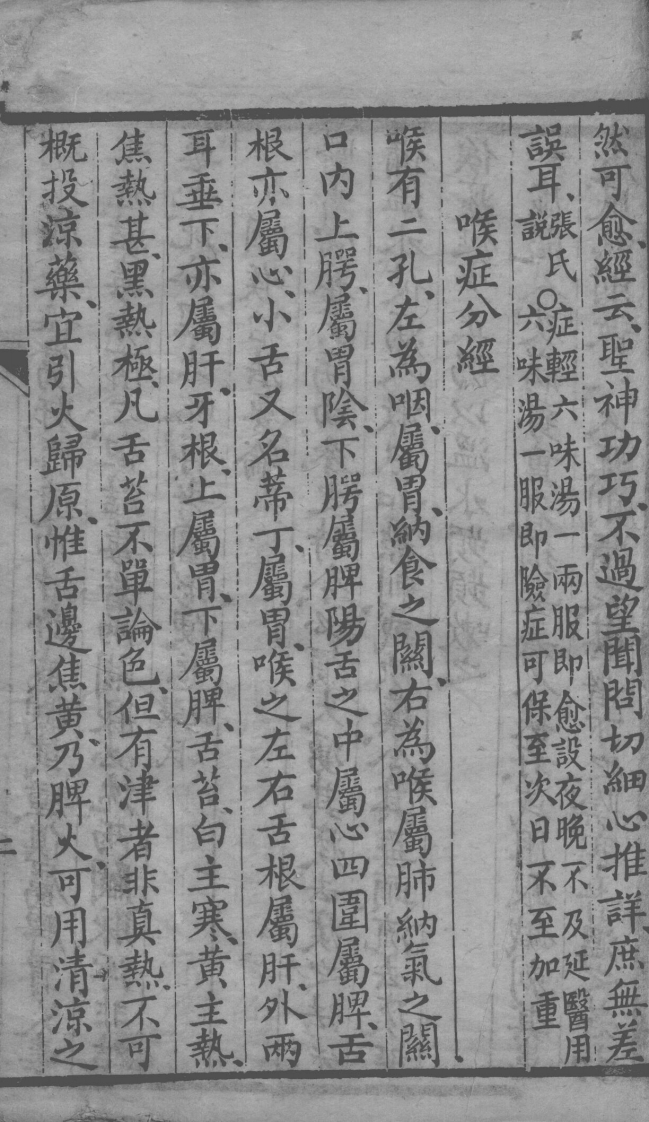 然可愈、經云、聖神功巧、不過望聞問切細心推詳、庶無差
誤耳、張氏説○症輕六味湯一兩服即愈設夜晚一不及延醫用
六味湯一服即險症可保至次日不至加重
喉症分經
喉有二孔、左為咽、屬胃、納食之關、右為喉、屬肺納氣之關、
口内上腭、屬胃陰、下腭屬脾陽舌之中屬心四圍屬脾、舌
根亦屬心、小舌又名蒂丁、屬胃、喉之左右舌根屬肝、外兩
耳垂下、亦屬肝、牙根、上屬胃、下屬脾、舌苔、白主寒、黄主熱、
焦熱甚、黑熱極、凡舌苔不單論色、但有津者非真熱、不可
概投涼藥、宜引火歸原、惟舌邊焦黄、乃脾火、可用清涼之
二